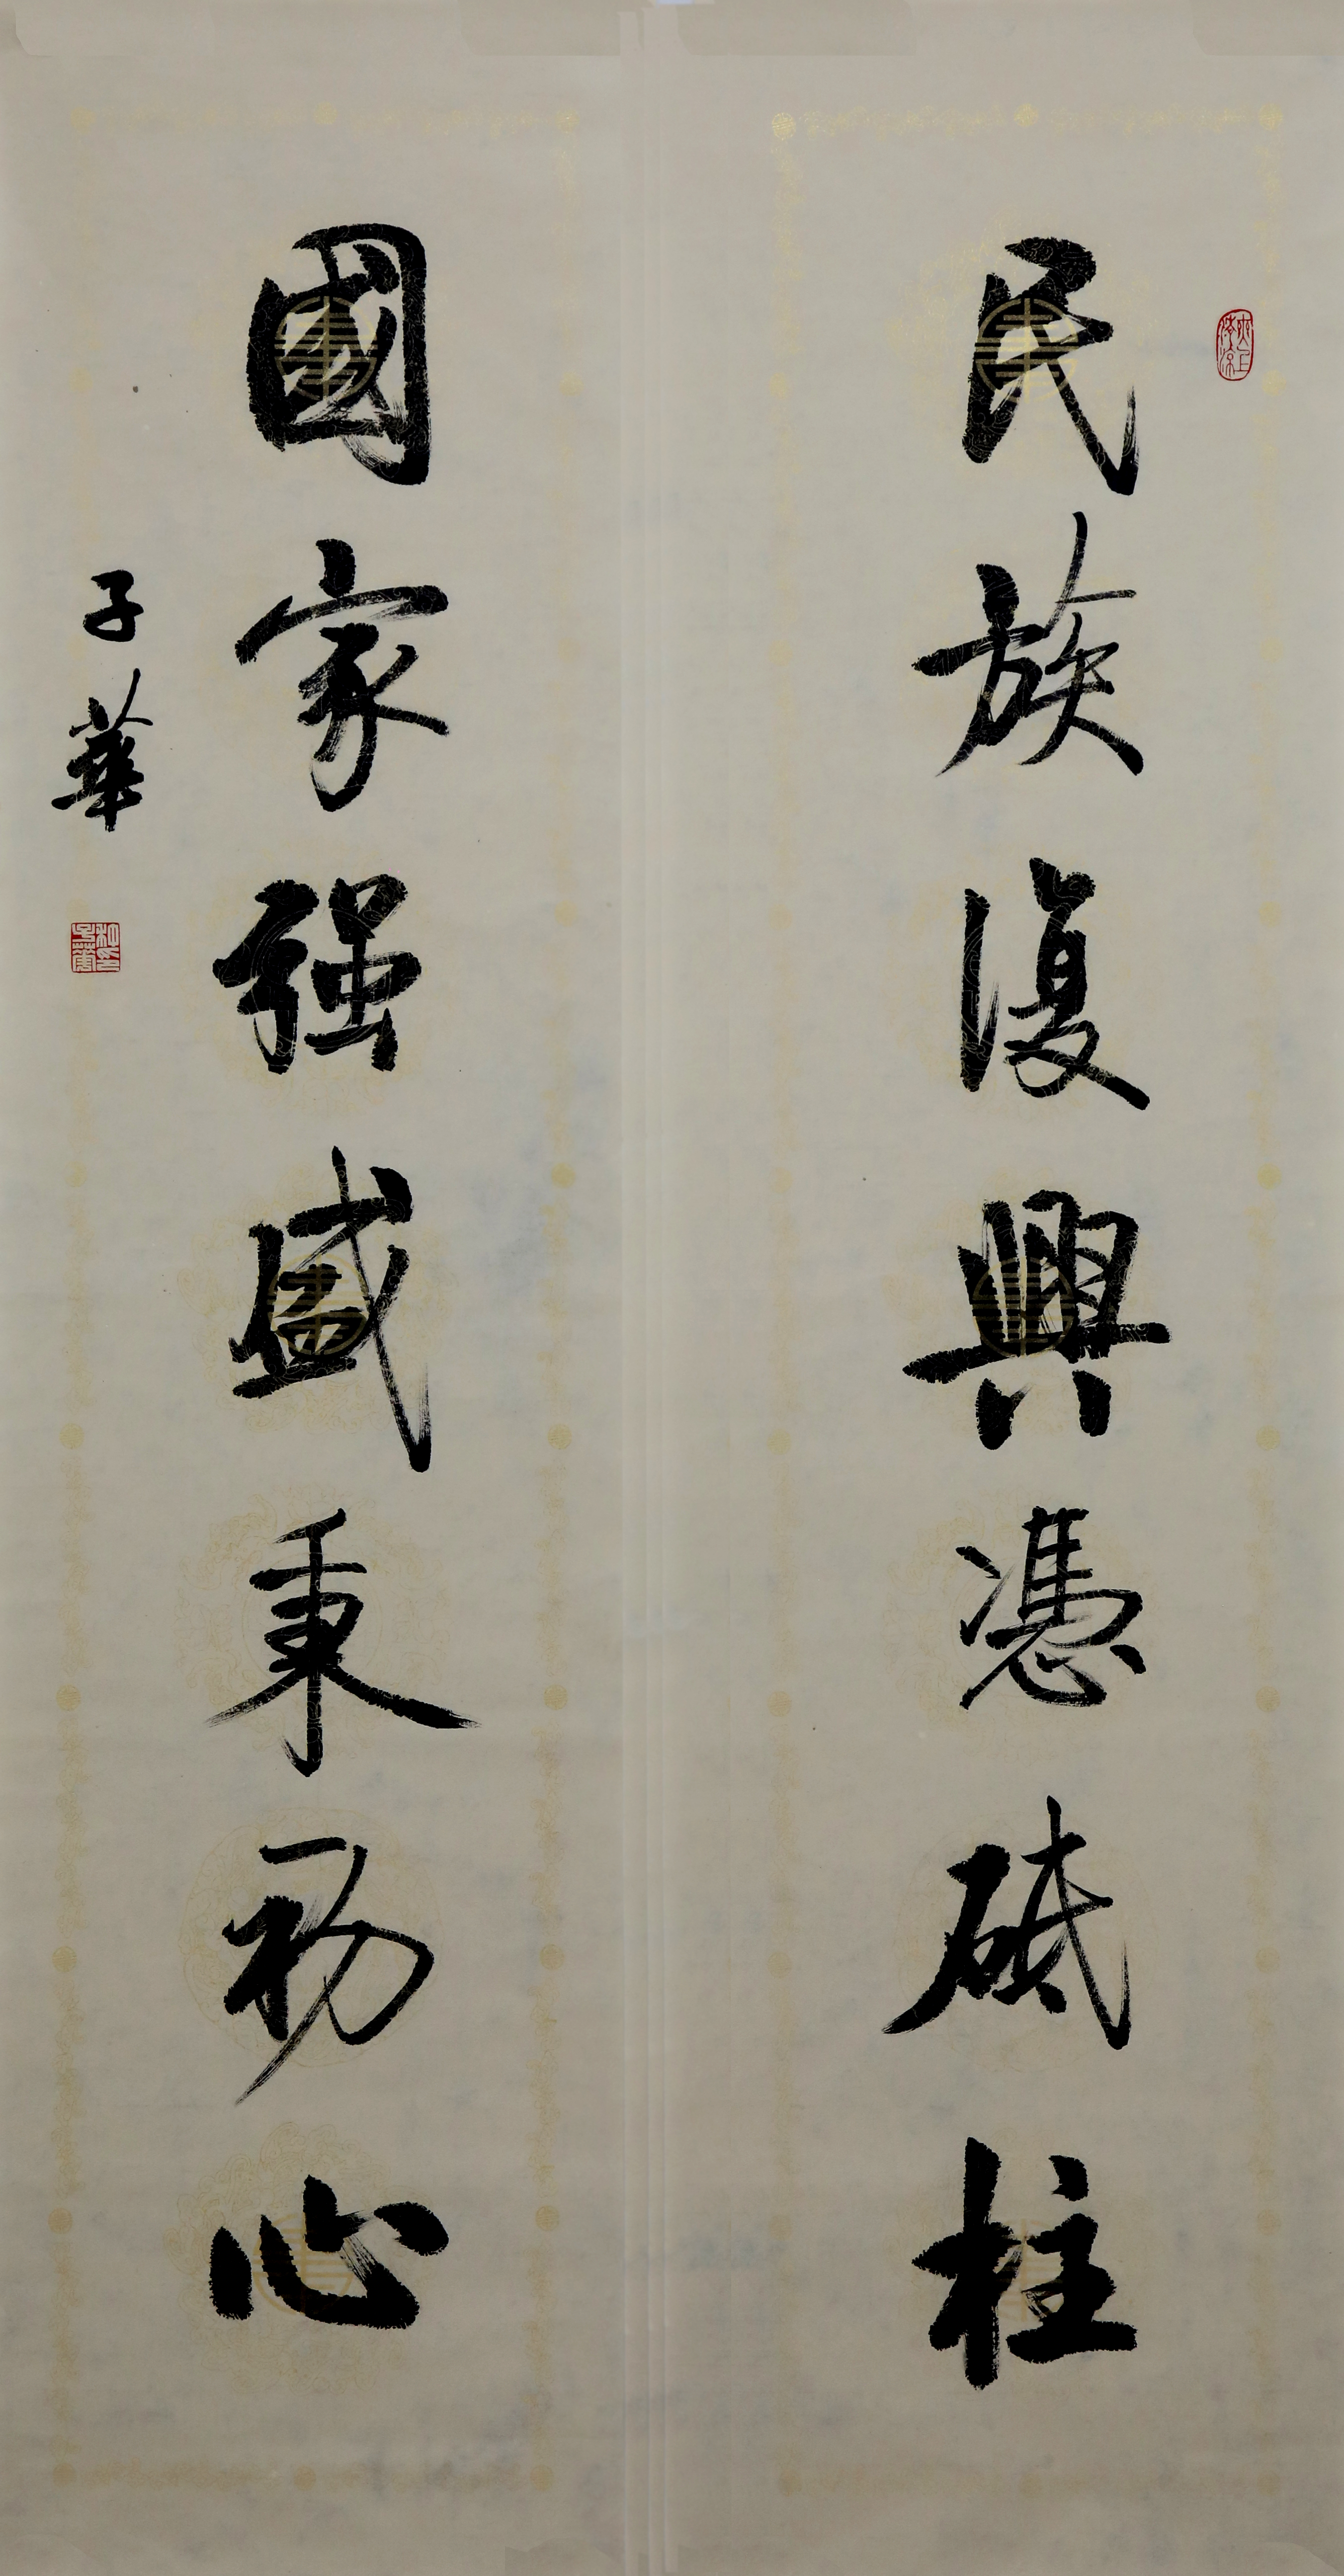 民族復興憑砥柱
國家强盛秉初心
子華